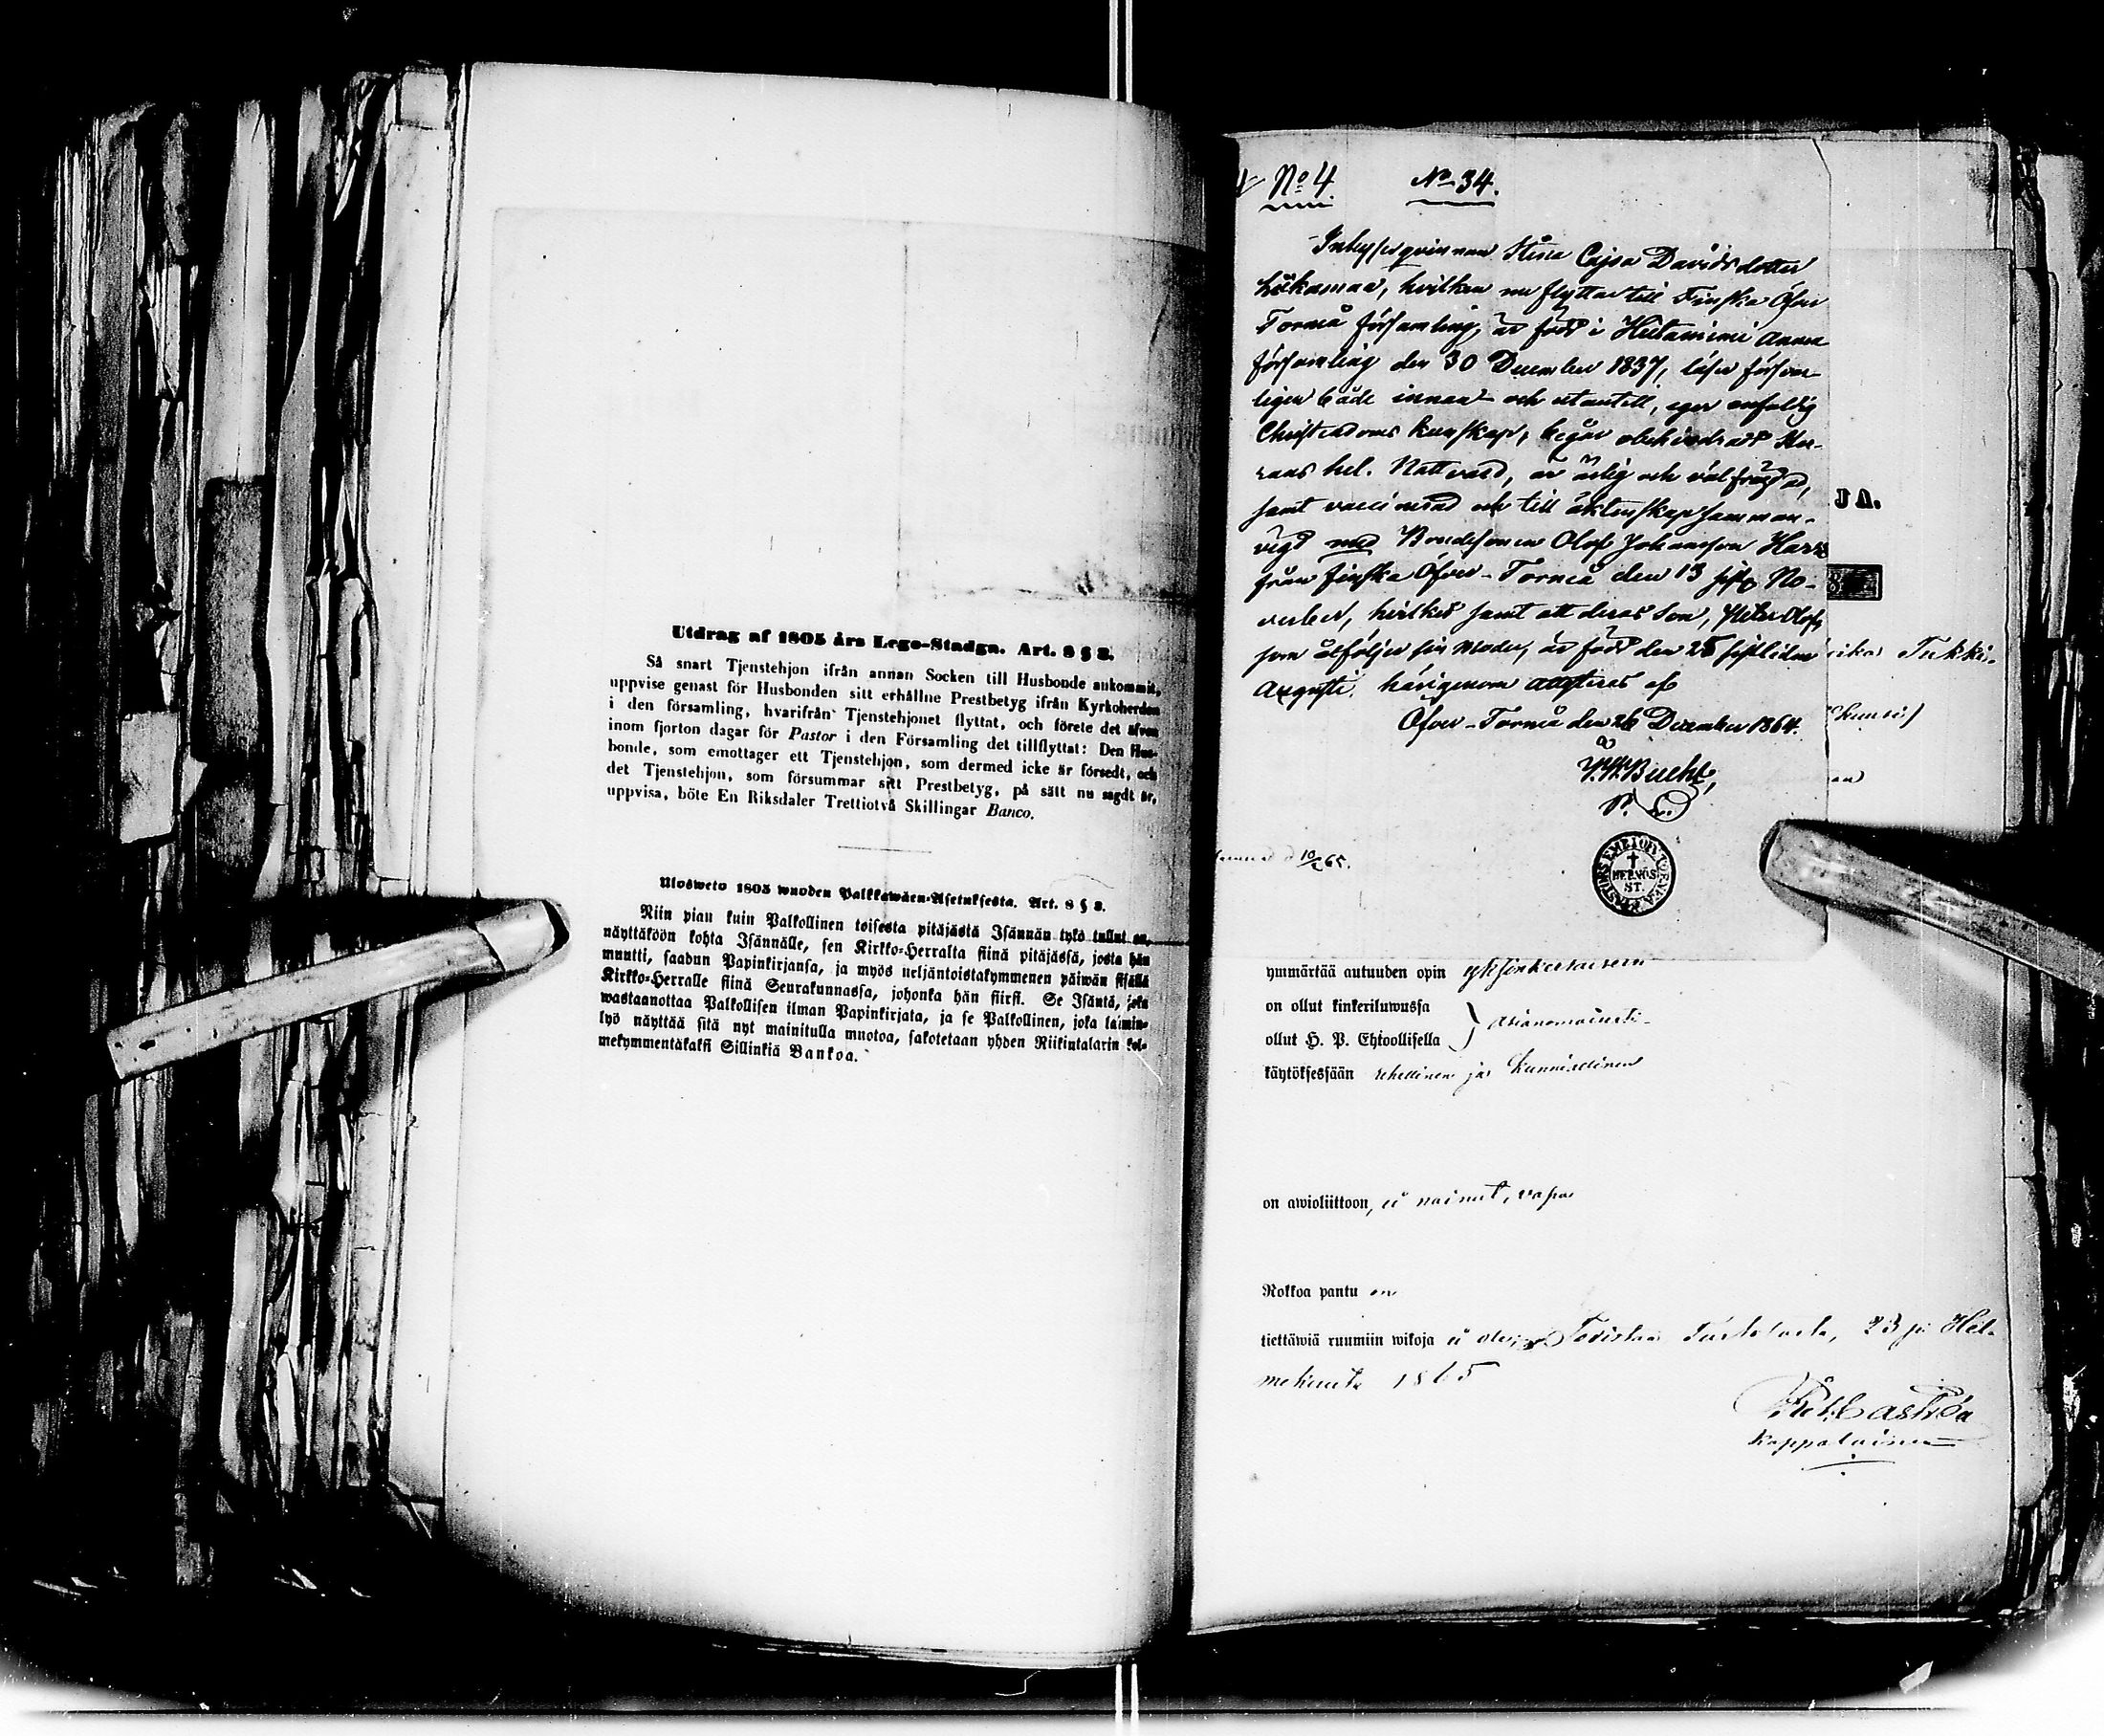 Utdrag af 1805 års Lego-Stadga. Art. 8 § 3.
Så snart Tjenstehjon ifrån annan Socken till Husbonde ankommit,
uppvise genast för Husbonden sitt erhållne Prestbetyg ifrån Kyrkoherden
i den församling, hvarifrån Tjenstehjonet flyttat, och förete det äfven
inom fjorton dagar för Pastor i den Församling det tillflyttat: Den Hus-
bonde, som emottager ett Tjenstehjon, som dermed icke är försedt, och
det Tjenstehjon, som försummar sitt Prestbetyg, på sätt nu sagdt är,
uppvisa, böte En Riksdaler Trettiotvå Skillingar Banco.
Ulosweto 1805 wuoden Palkkawäen-Asetuksesta. Art. 8 § 3.
Niin pian kuin Palkollinen toisesta pitäjästä Isännän tykö tullut on,
näyttäköön kohta Isännälle, sen Kirkko-Herralta siinä pitäjässä, josta hän
muutti, saadun Papinkirjansa, ja myös neljäntoistakymmenen päiwän sisällä
Kirkko-Herralle siinä Seurakunnassa, johonka hän siirsi. Se Isäntä, joka
wastaanottaa Palkollisen ilman Papinkirjata, ja se Palkollinen, joka laimin-
lyö näyttää sitä nyt mainitulla muotoa, sakotetaan yhden Riikintalarin kol-
mekymmentäkaksi Sillinkiä Bankoa.
No 4 No 34.
Inhysesqvinnan Stina Cajsa Davidsdotter
, hvilken nu flyttar till Finska Öfver
Torneå församling, är född i Hietaniemi annex
församling den 30 December 1837, läser försvar-
ligen både innan- och utantill, eger enfaldig
Christendoms kunskap, begår obehindrad Her-
rans hel. Nattvard, är ärlig och välfrägdad,
samt vaccinerad och till äktenskap samman-
vigd med Bondesonen Olof Johansson
från Finska Öfver-Torneå den 13 sistl. No-
vember, hvilket samt att deras Son, Peter Olof,
som åtföljer sin Moder, är född den 25 sistliden
Augusti, härigenom attesteras af
Öfver-Torneå den 26 December 1864.
10/2 65.
JA.
Tukki-
ymmärtää autuuden opin yksinkertaisesti
on ollut kinkeriluwussa
ollut H. P. Ehtoollisella } asianomaisesti
käytöksessään rehellinen ja kunniallinen
on awioliittoon, ei nainut, vapaa
Rokkoa pantu on
tiettäwiä ruumiin wikoja ei ole; Todistaa 23 p. Hel-
mikuuta 1865
Castrén
Kappalainen